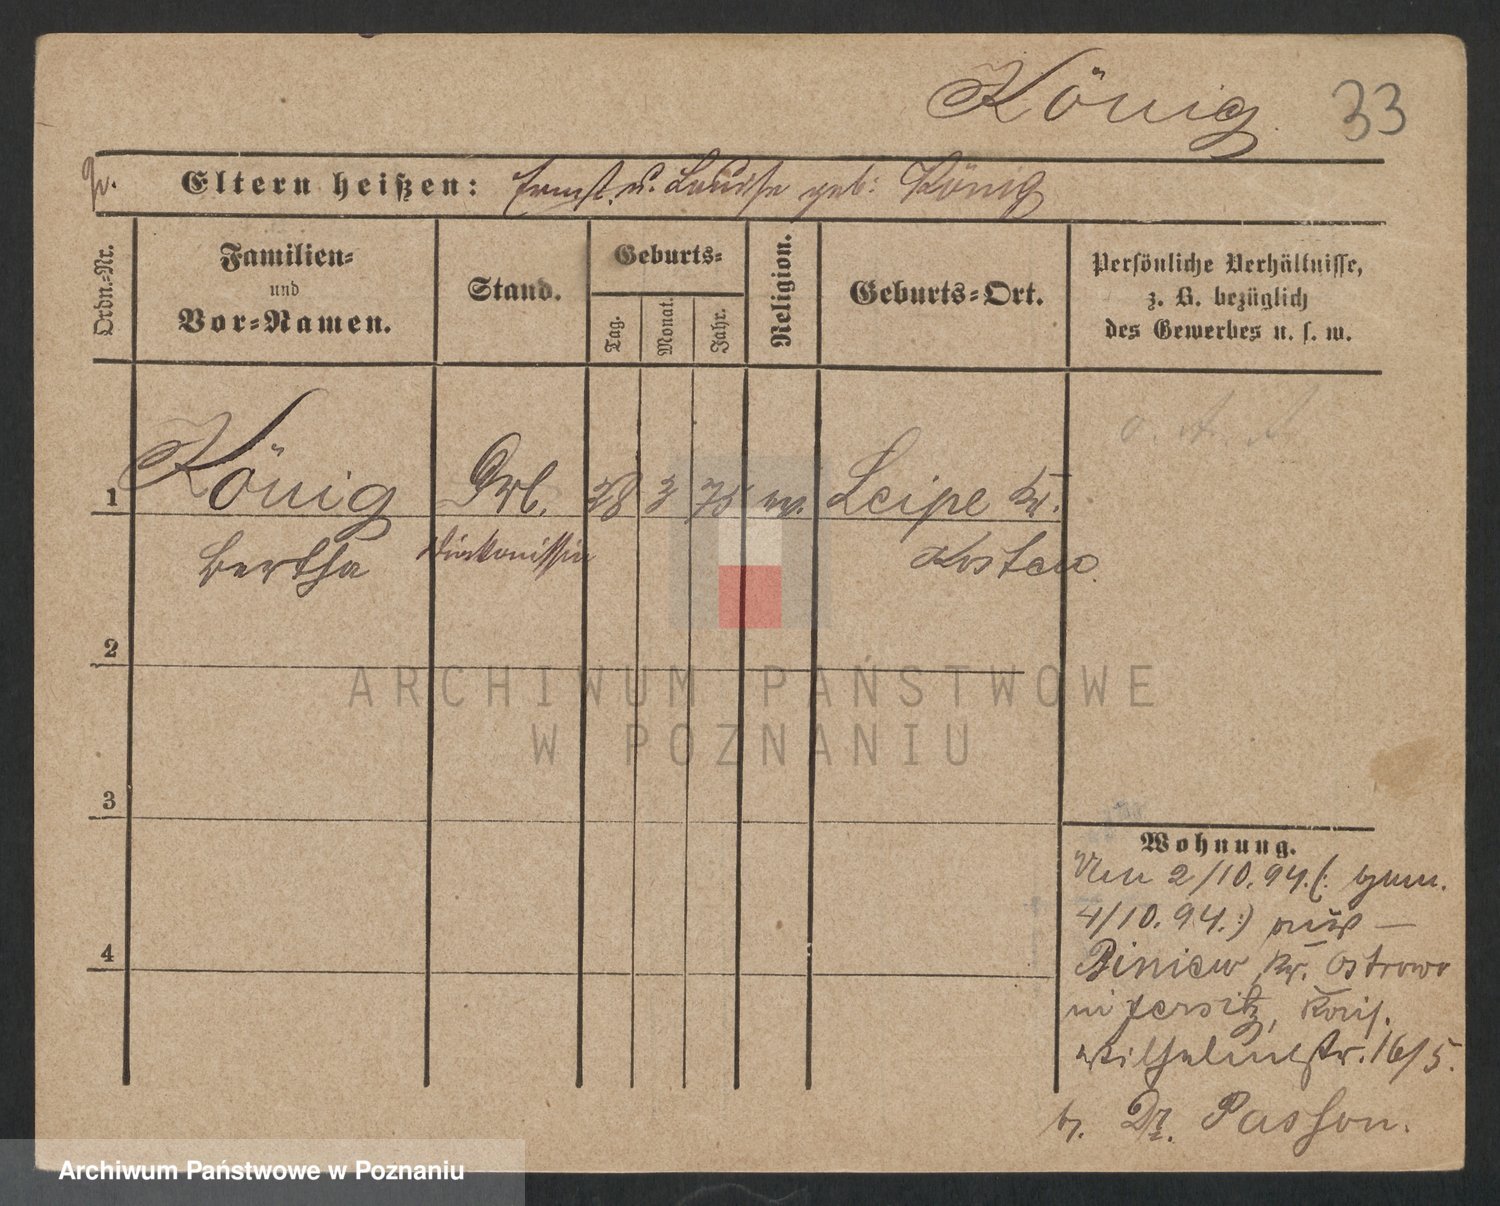 König
33
Eltern heißen: Ernst u. Louise geb: König
Ordn.-Nr.
Familien-
und
Vor-Namen.
Stand.
Geburts-
Tag.
Monat.
Jahr.
Religion.
Geburts-Ort.
Persönliche Verhältnisse,
z. B. bezüglich
des Gewerbes u. s. w.
1
König
28 3 75 ev. Leipe Kr.
Bertha
Diakonissin
Kosten.
2
3
4
ARCHIWUM PAŃSTWOWE
W POZNANIU
Wohnung.
Am 2/10.94. (: gem.
4/10.94.:) aus
Biniew Kr. Ostrowo
in Jersitz, Kais.
Wilhelmstr. 16/5.
b. Dr. Passon.
Archiwum Państwowe w Poznaniu